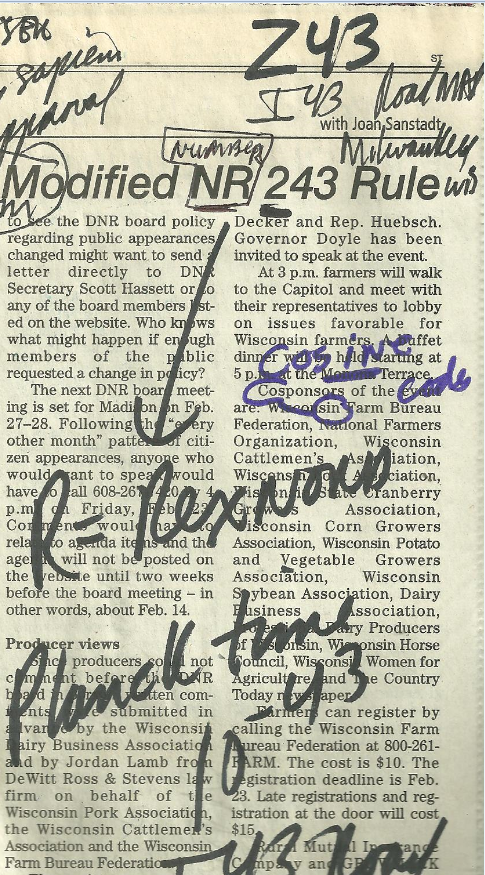 sapien
approval
Z43
ST
I43 Road MAP
with Joan Sanstadt
NUMBER
Modified NR 243 Rule
WIS
to see the DNR board policy
regarding public appearances
changed might want to send a
letter directly to DNR
Secretary Scott Hassett or to
any of the board members list-
ed on the website. Who knows
what might happen if enough
members of the public
requested a change in policy?
The next DNR board meet-
ing is set for Madison on Feb.
27-28. Following the "every
other month" pattern of citi-
zen appearances, anyone who
would want to speak would
have to call by 4
p.m. on Friday, Feb. 23.
Comments would have to
relate to agenda items and the
agenda will not be posted on
the website until two weeks
before the board meeting – in
other words, about Feb. 14.
Producer views
Since producers could not
comment before the DNR
board in written com-
ments were submitted in
advance by the Wisconsin
Dairy Business Association
and by Jordan Lamb from
DeWitt Ross & Stevens law
firm on behalf of the
Wisconsin Pork Association,
the Wisconsin Cattlemen's
Association and the Wisconsin
Farm Bureau Federation.
Decker and Rep. Huebsch.
Governor Doyle has been
invited to speak at the event.
At 3 p.m. farmers will walk
to the Capitol and meet with
their representatives to lobby
on issues favorable for
Wisconsin farmers. A buffet
dinner will be held starting at
5 p.m. at the Monona Terrace.
Cosponsors of the event
are: Wisconsin Farm Bureau
Federation, National Farmers
Organization, Wisconsin
Cattlemen's Association,
Wisconsin Pork Association,
Wisconsin State Cranberry
Growers Association,
Wisconsin Corn Growers
Association, Wisconsin Potato
and Vegetable Growers
Association, Wisconsin
Soybean Association, Dairy
Business Association,
Professional Dairy Producers
of Wisconsin, Wisconsin Horse
Council, Wisconsin Women for
Agriculture, and The Country
Today newspaper.
Farmers can register by
calling the Wisconsin Farm
Bureau Federation at 800-261-
FARM. The cost is $10. The
registration deadline is Feb.
23. Late registrations and reg-
istration at the door will cost
$15.
Rural Mutual Insurance
Company and
Cosine
code
R=
Planck time
10-43
I43 Road